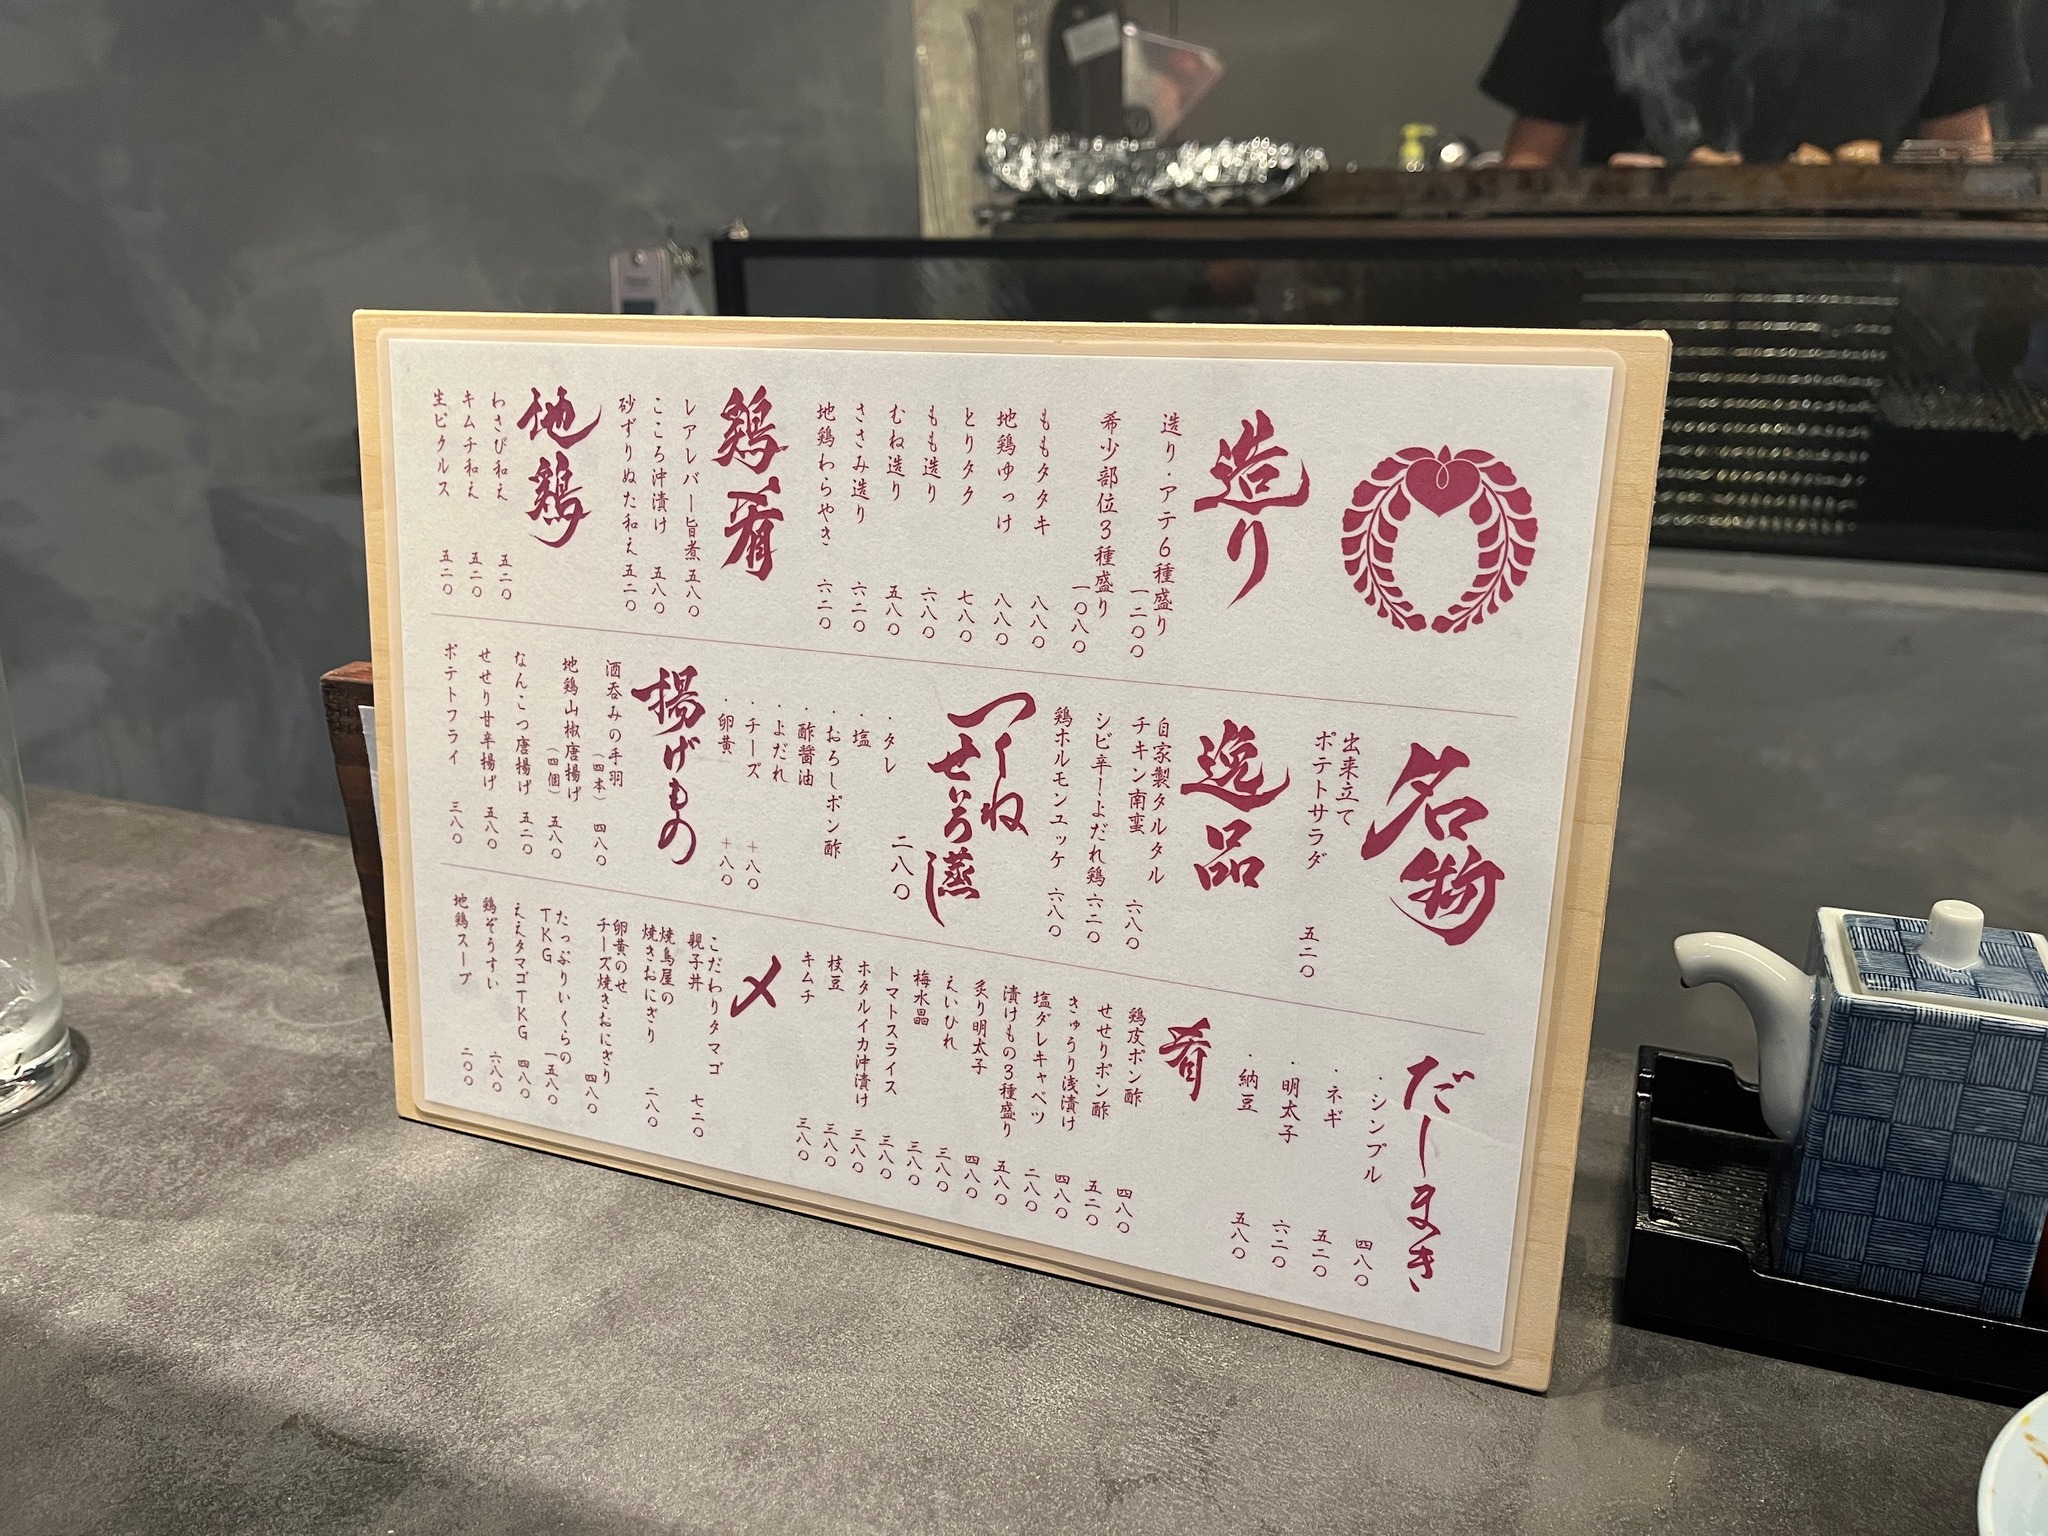 造り
造り・アテ6種盛り 一二〇〇
希少部位3種盛り 一〇八〇
ももタタキ 八八〇
地鶏ゆっけ 八八〇
とりタク 七八〇
もも造り 六八〇
むね造り 五八〇
ささみ造り 六二〇
地鶏わらやき 六二〇
鶏肴
レアレバー旨煮 五八〇
こころ沖漬け 五八〇
砂ずりぬた和え 五二〇
地鶏
わさび和え 五二〇
キムチ和え 五二〇
生ピクルス 五二〇
名物
出来立て
ポテトサラダ 五二〇
逸品
自家製タルタル
チキン南蛮 六八〇
シビ辛ーよだれ鶏 六二〇
鶏ホルモンユッケ 六八〇
つくね
せいろ蒸し
二八〇
・タレ
・塩
・おろしポン酢
・酢醤油
・よだれ
・チーズ +八〇
・卵黄 +八〇
揚げもの
酒呑みの手羽
(四本) 四八〇
地鶏山椒唐揚げ
(四個) 五八〇
なんこつ唐揚げ 五二〇
せせり甘辛揚げ 五八〇
ポテトフライ 三八〇
だしまき
・シンプル 四八〇
・ネギ 五二〇
・明太子 六二〇
・納豆 五八〇
肴
鶏皮ポン酢 四八〇
せせりポン酢 五二〇
きゅうり浅漬け 四八〇
塩ダレキャベツ 二八〇
漬けもの3種盛り 五八〇
炙り明太子 四八〇
えいひれ 三八〇
梅水晶 三八〇
トマトスライス 三八〇
ホタルイカ沖漬け 三八〇
枝豆 三八〇
キムチ 三八〇
〆
こだわりタマゴ
親子丼 七二〇
焼鳥屋の
焼きおにぎり 二八〇
卵黄のせ
チーズ焼きおにぎり 四八〇
たっぷりいくらの
TKG 一五八〇
ええタマゴTKG 四八〇
鶏ぞうすい 六八〇
地鶏スープ 二〇〇